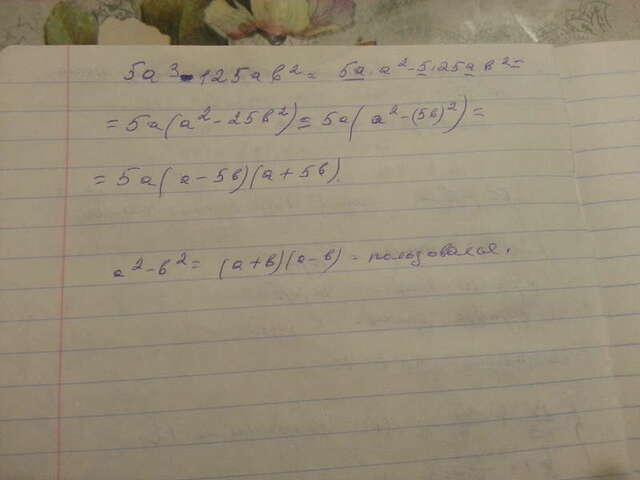 5a³-125ab²= 5a·a²-5·25ab²=
=5a(a²-25b²)=5a(a²-(5b)²)=
=5a(a-5b)(a+5b).
a²-b²= (a+b)(a-b) - пользовался.